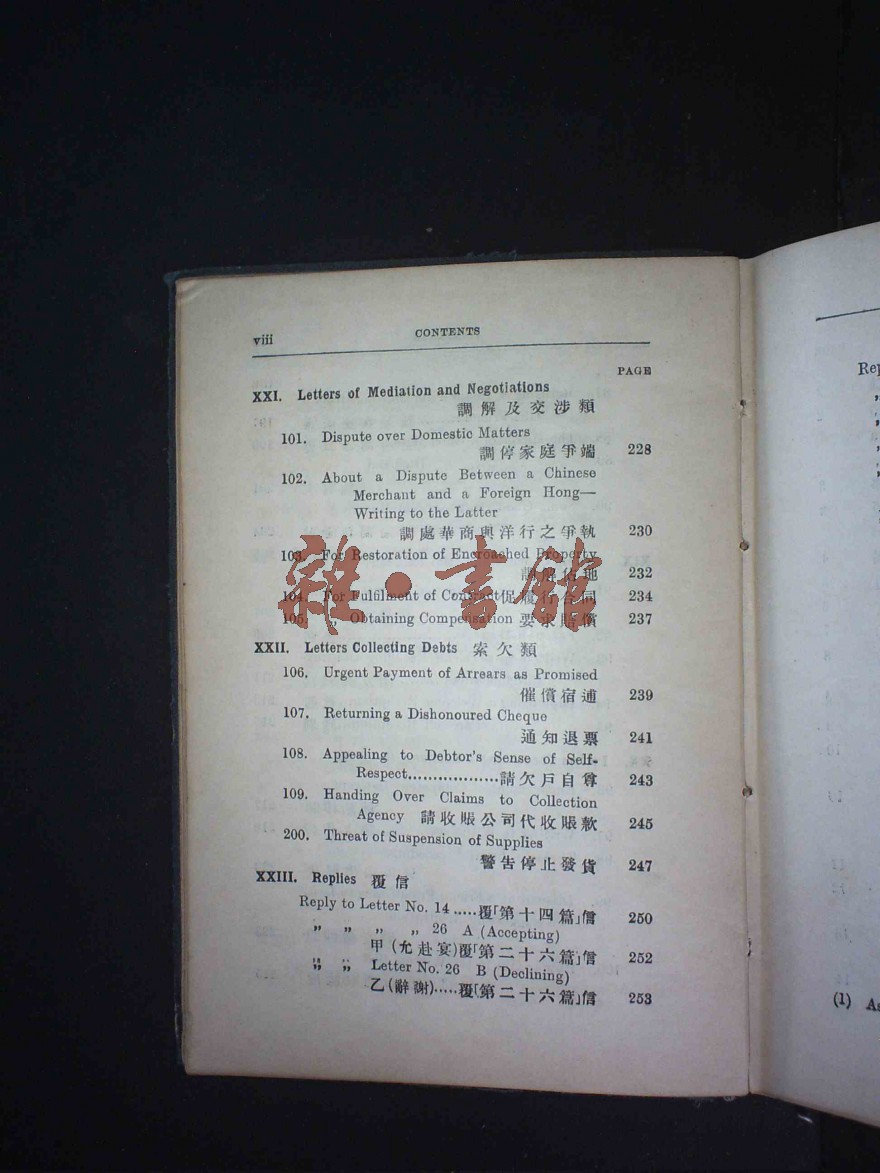 viii CONTENTS
PAGE
XXI. Letters of Mediation and Negotiations
調解及交涉類
101. Dispute over Domestic Matters
調停家庭爭端 228
102. About a Dispute Between a Chinese
Merchant and a Foreign Hong—
Writing to the Latter
調處華商與洋行之爭執 230
103. For Restoration of Encroached Property
調解佔地 232
104. For Fulfilment of Contract 促履行合同 234
105. „ Obtaining Compensation 要求賠償 237
XXII. Letters Collecting Debts 索欠類
106. Urgent Payment of Arrears as Promised
催償宿逋 239
107. Returning a Dishonoured Cheque
通知退票 241
108. Appealing to Debtor's Sense of Self-
Respect..................請欠戶自尊 243
109. Handing Over Claims to Collection
Agency 請收賬公司代收賬款 245
200. Threat of Suspension of Supplies
警告停止發貨 247
XXIII. Replies 覆信
Reply to Letter No. 14.....覆「第十四篇」信 250
„ „ „ „ 26 A (Accepting)
甲(允赴宴)覆「第二十六篇」信 252
„ „ Letter No. 26 B (Declining)
乙(辭謝).....覆「第二十六篇」信 253
雜·書館
Rep
(1) As